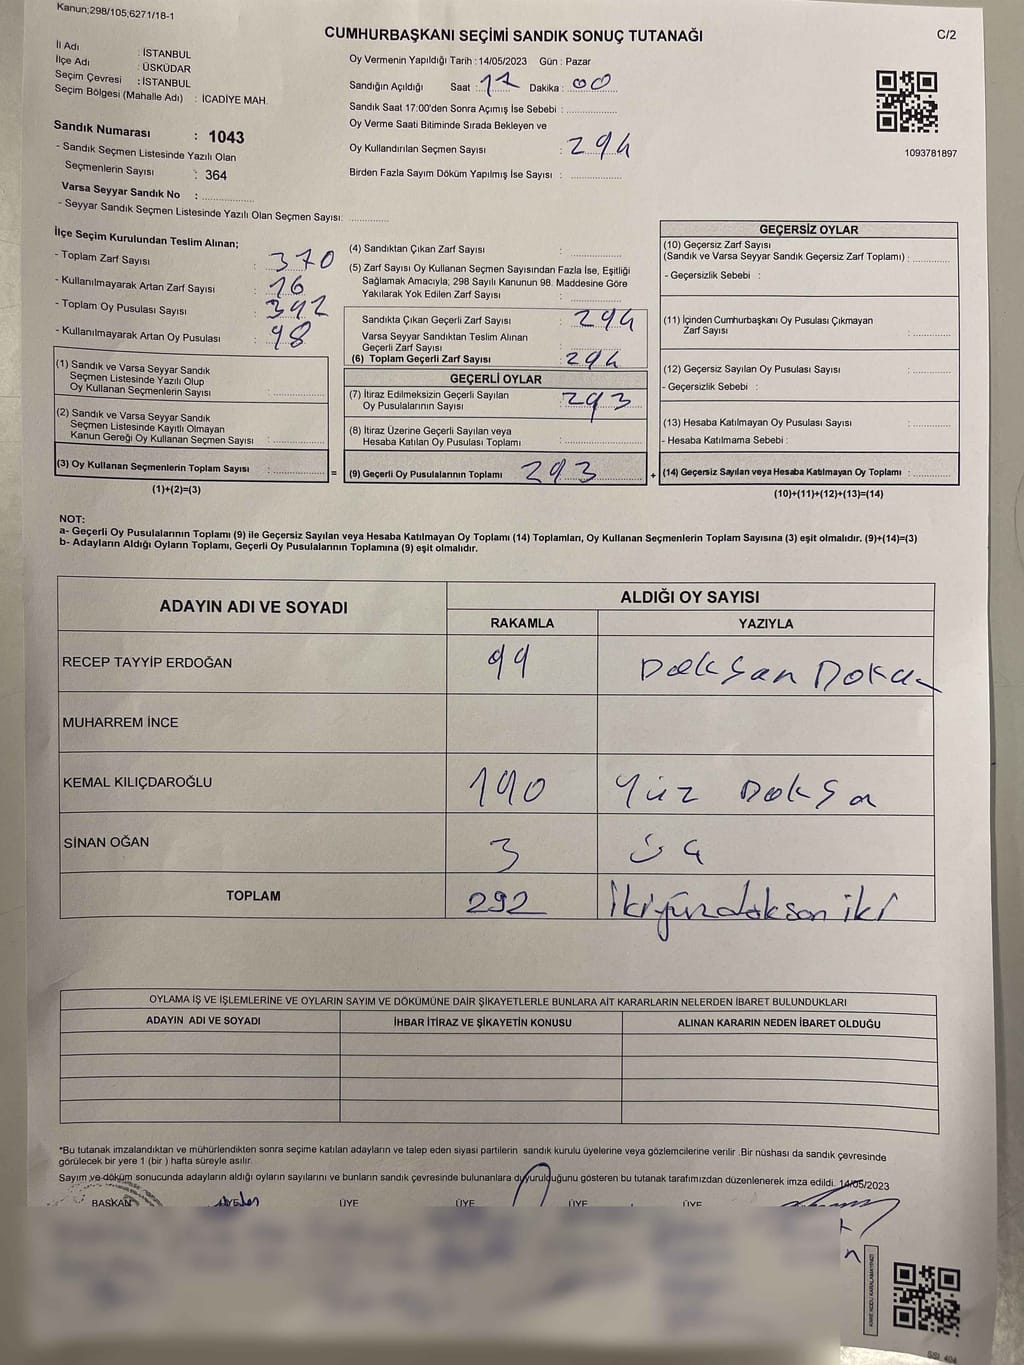 Kanun;298/105,6271/18-1
CUMHURBAŞKANI SEÇİMİ SANDIK SONUÇ TUTANAĞI
C/2
İl Adı : İSTANBUL
İlçe Adı : ÜSKÜDAR
Seçim Çevresi : İSTANBUL
Seçim Bölgesi (Mahalle Adı) : İCADİYE MAH.
Oy Vermenin Yapıldığı Tarih : 14/05/2023 Gün : Pazar
Sandığın Açıldığı Saat : 17 Dakika : 00
Sandık Saat 17:00'den Sonra Açımış İse Sebebi :
Oy Verme Saati Bitiminde Sırada Bekleyen ve
Oy Kullandırılan Seçmen Sayısı : 294
Birden Fazla Sayım Döküm Yapılmış İse Sayısı :
1093781897
Sandık Numarası : 1043
- Sandık Seçmen Listesinde Yazılı Olan
Seçmenlerin Sayısı : 364
Varsa Seyyar Sandık No :
- Seyyar Sandık Seçmen Listesinde Yazılı Olan Seçmen Sayısı:
İlçe Seçim Kurulundan Teslim Alınan;
- Toplam Zarf Sayısı : 370
- Kullanılmayarak Artan Zarf Sayısı : 76
- Toplam Oy Pusulası Sayısı : 392
- Kullanılmayarak Artan Oy Pusulası : 98
(1) Sandık ve Varsa Seyyar Sandık
Seçmen Listesinde Yazılı Olup
Oy Kullanan Seçmenlerin Sayısı :
(2) Sandık ve Varsa Seyyar Sandık
Seçmen Listesinde Kayıtlı Olmayan
Kanun Gereği Oy Kullanan Seçmen Sayısı :
(3) Oy Kullanan Seçmenlerin Toplam Sayısı :
(1)+(2)=(3)
(4) Sandıktan Çıkan Zarf Sayısı :
(5) Zarf Sayısı Oy Kullanan Seçmen Sayısından Fazla İse, Eşitliği
Sağlamak Amacıyla; 298 Sayılı Kanunun 98. Maddesine Göre
Yakılarak Yok Edilen Zarf Sayısı :
Sandıkta Çıkan Geçerli Zarf Sayısı : 294
Varsa Seyyar Sandıktan Teslim Alınan
Geçerli Zarf Sayısı :
(6) Toplam Geçerli Zarf Sayısı : 294
GEÇERLİ OYLAR
(7) İtiraz Edilmeksizin Geçerli Sayılan
Oy Pusulalarının Sayısı : 293
(8) İtiraz Üzerine Geçerli Sayılan veya
Hesaba Katılan Oy Pusulası Toplamı :
= (9) Geçerli Oy Pusulalarının Toplamı 293
GEÇERSİZ OYLAR
(10) Geçersiz Zarf Sayısı
(Sandık ve Varsa Seyyar Sandık Geçersiz Zarf Toplamı) :
- Geçersizlik Sebebi :
(11) İçinden Cumhurbaşkanı Oy Pusulası Çıkmayan
Zarf Sayısı :
(12) Geçersiz Sayılan Oy Pusulası Sayısı :
- Geçersizlik Sebebi :
(13) Hesaba Katılmayan Oy Pusulası Sayısı :
- Hesaba Katılmama Sebebi :
+ (14) Geçersiz Sayılan veya Hesaba Katılmayan Oy Toplamı :
(10)+(11)+(12)+(13)=(14)
NOT:
a- Geçerli Oy Pusulalarının Toplamı (9) ile Geçersiz Sayılan veya Hesaba Katılmayan Oy Toplamı (14) Toplamları, Oy Kullanan Seçmenlerin Toplam Sayısına (3) eşit olmalıdır. (9)+(14)=(3)
b- Adayların Aldığı Oyların Toplamı, Geçerli Oy Pusulalarının Toplamına (9) eşit olmalıdır.
ADAYIN ADI VE SOYADI
ALDIĞI OY SAYISI
RAKAMLA YAZIYLA
RECEP TAYYİP ERDOĞAN 99 Doksan Dokuz
MUHARREM İNCE
KEMAL KILIÇDAROĞLU 190 Yüz Doksa
SİNAN OĞAN 3 üç
TOPLAM 292 İkiyüzdoksan iki
OYLAMA İŞ VE İŞLEMLERİNE VE OYLARIN SAYIM VE DÖKÜMÜNE DAİR ŞİKAYETLERLE BUNLARA AİT KARARLARIN NELERDEN İBARET BULUNDUKLARI
ADAYIN ADI VE SOYADI İHBAR İTİRAZ VE ŞİKAYETİN KONUSU ALINAN KARARIN NEDEN İBARET OLDUĞU
*Bu tutanak imzalandıktan ve mühürlendikten sonra seçime katılan adayların ve talep eden siyasi partilerin sandık kurulu üyelerine veya gözlemcilerine verilir .Bir nüshası da sandık çevresinde
görülecek bir yere 1 (bir ) hafta süreyle asılır.
Sayım ve döküm sonucunda adayların aldığı oyların sayılarını ve bunların sandık çevresinde bulunanlara duyurulduğunu gösteren bu tutanak tarafımızdan düzenlenerek imza edildi. 14/05/2023
BAŞKAN ÜYE ÜYE ÜYE ÜYE ÜYE